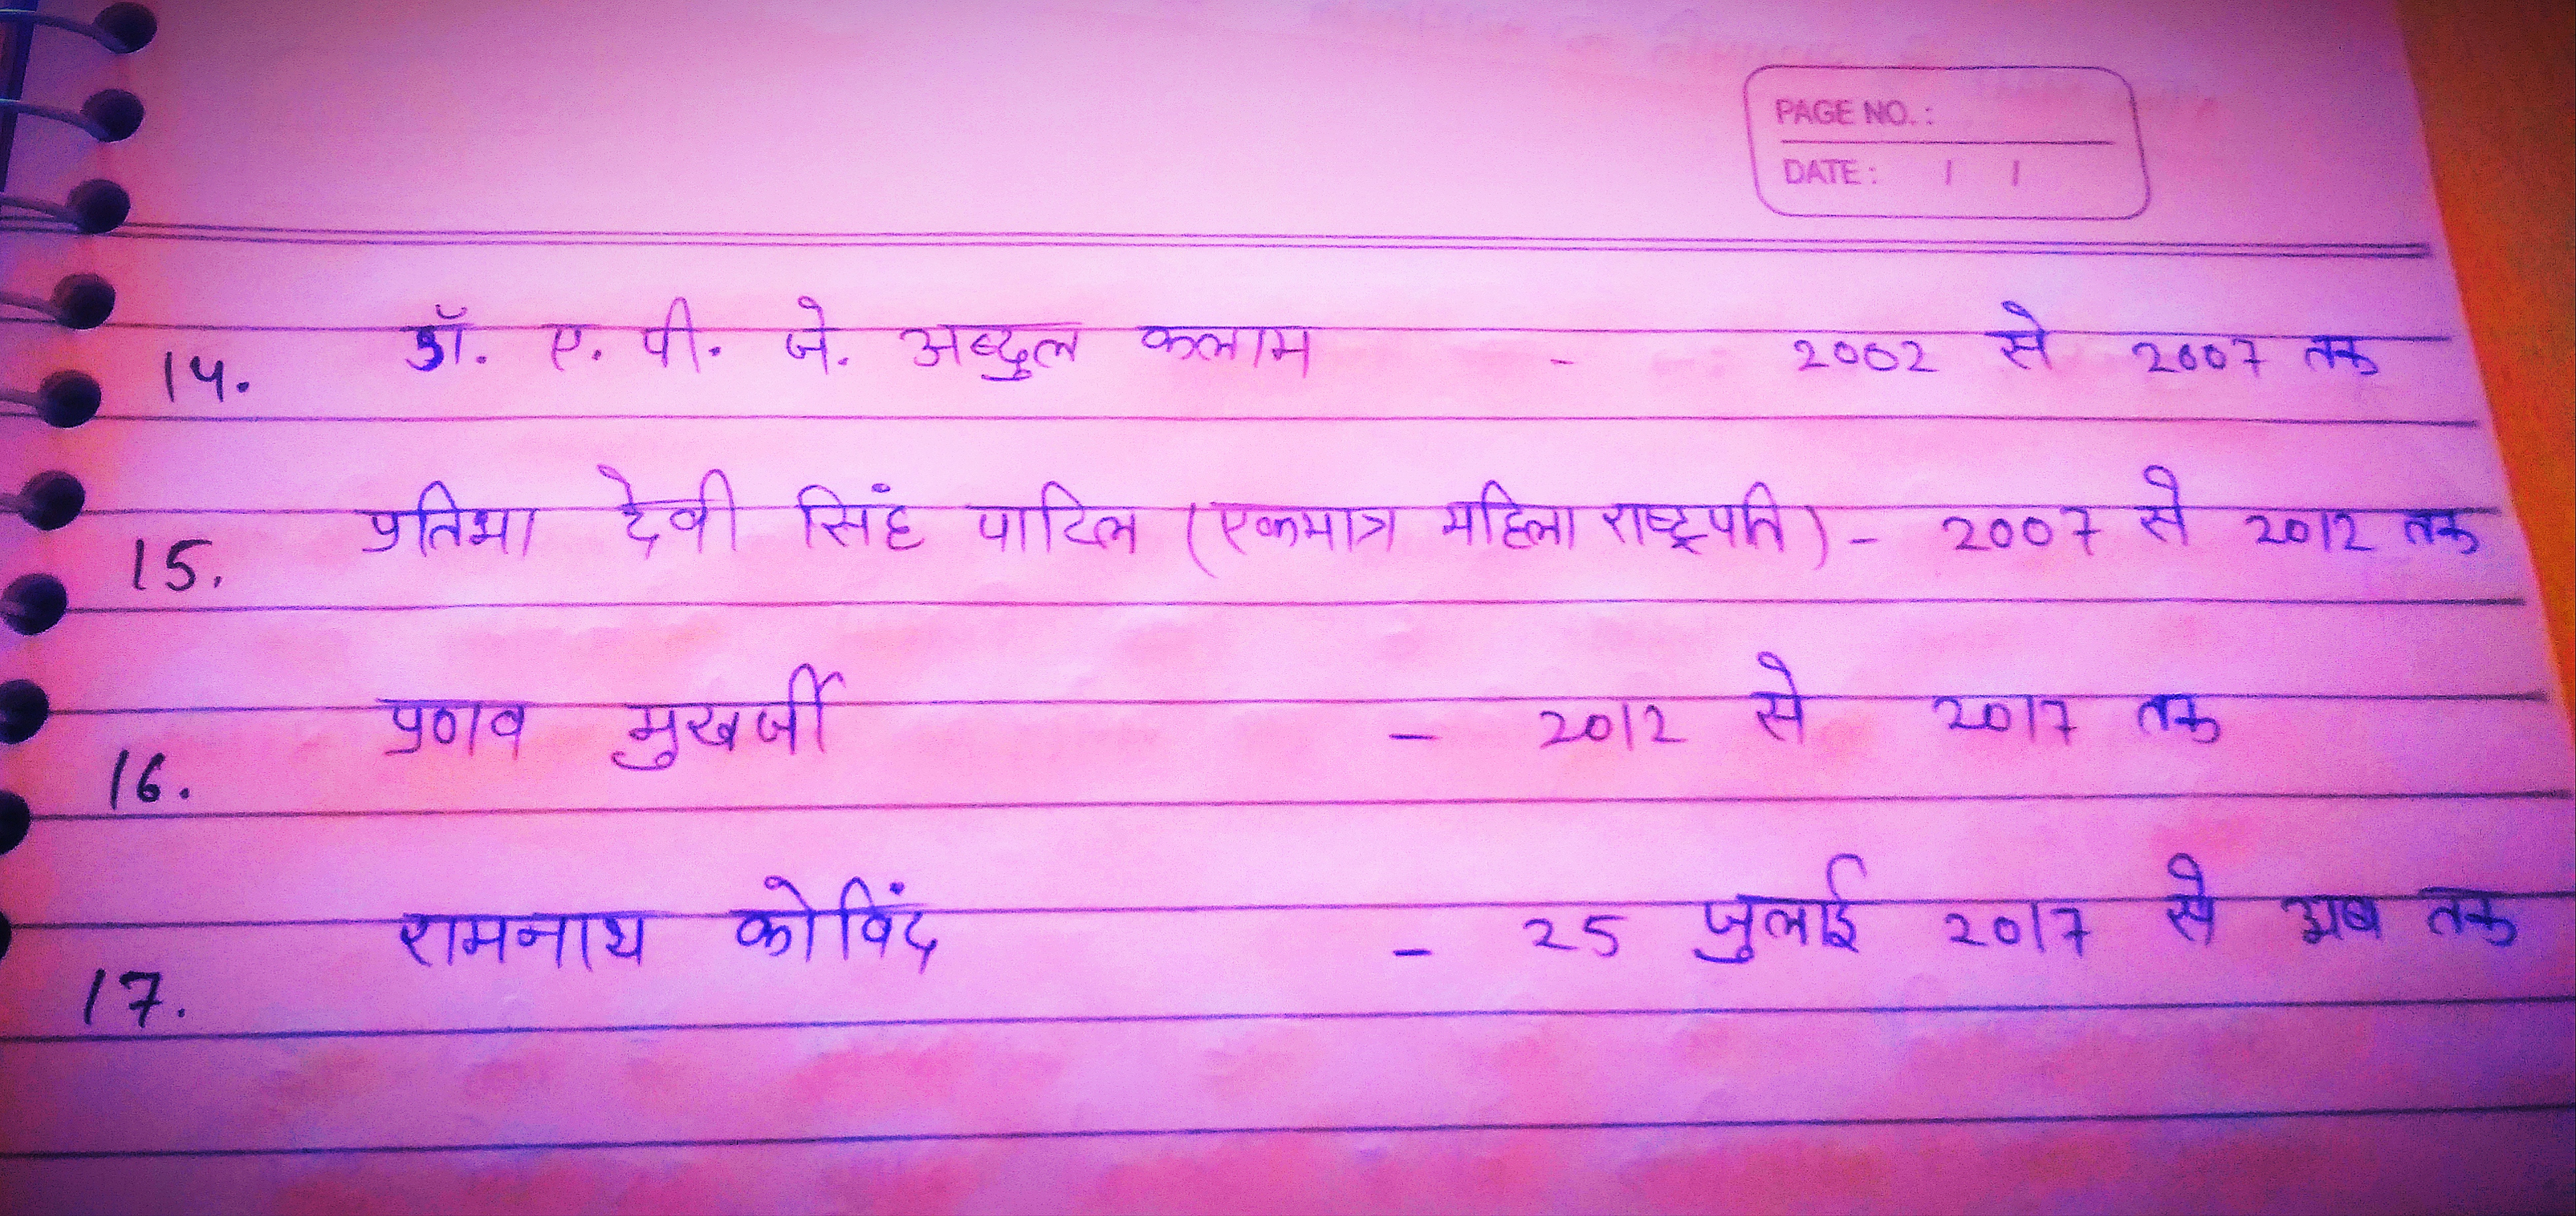 PAGE NO. :
DATE : / /
14. डॉ. ए. पी. जे. अब्दुल कलाम - 2002 से 2007 तक
15. प्रतिभा देवी सिंह पाटिल (एकमात्र महिला राष्ट्रपति) - 2007 से 2012 तक
16. प्रणव मुखर्जी - 2012 से 2017 तक
17. रामनाथ कोविंद - 25 जुलाई 2017 से अब तक